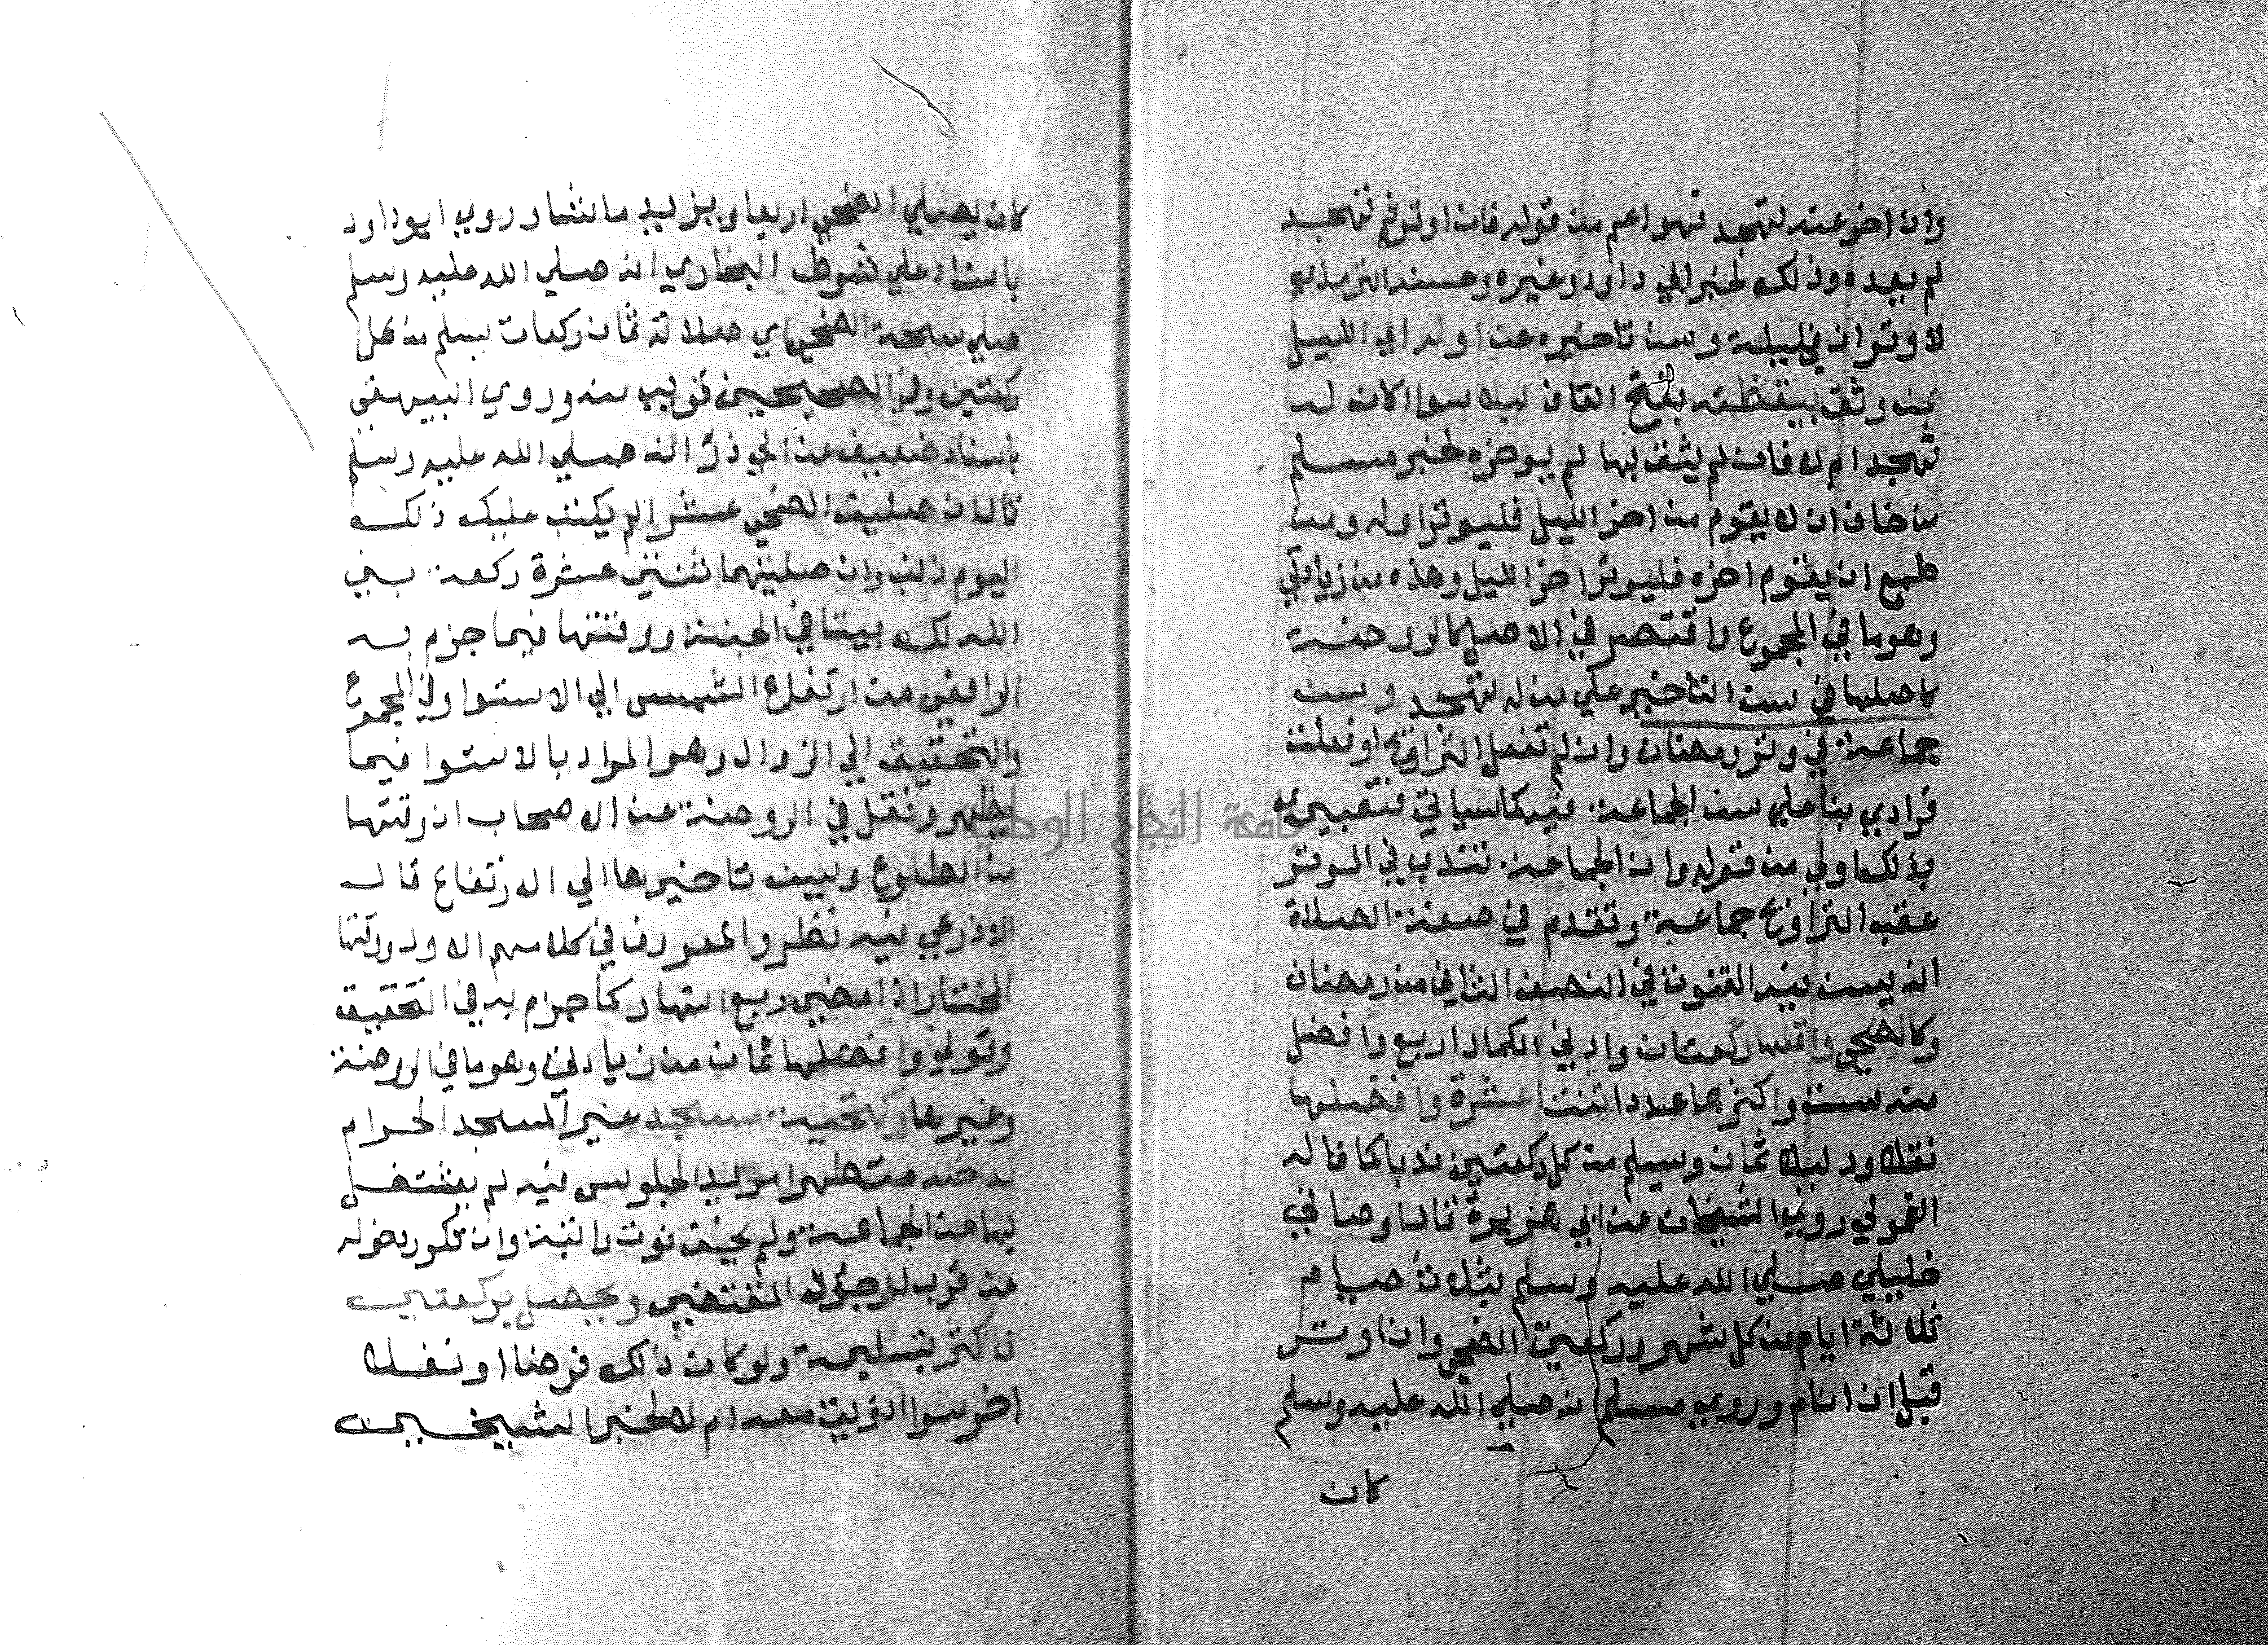 وان اخر عنه لتهجد فهو اعم من قوله فان اوتر ثم تهجد
لم يعده وذلك لخبر ابي داود وغيره وحسنه الترمذي
لا وتران في ليلة وسن تاخيره عن اوله اي الليل
لمن وثق بيقظته بفتح القاف ليلا سوا اكان له
تهجد ام لا فان لم يثق بها لم يوخره لخبر مسلم
من خاف ان لا يقوم من اخر الليل فليوتر اوله ومن
طمع ان يقوم اخره فليوتر اخر الليل وهذه من زيادتي
وهو ما في المجموع واقتصر في الاصل كالروضة
كاصلها في سن التاخير على من له تهجد وسن
جماعة في وتر رمضان وان لم تفعل التراويح او فعلت
فرادي بنا علي سن الجماعة فيه كما سياتي فتعبيري
بذلك اولي من قوله وان الجماعة تندب في الوتر
عقب التراويح جماعة وتقدم في صفة الصلاة
انه يسن فيه القنوت في النصف الثاني من رمضان
وكالضحي واقلها ركعتان وادني الكمال اربع وافضل
منه ست واكثرها عددا ثنتا عشرة وافضلها
نقلا ودليلا ثمان ويسلم من كل ركعتين ندبا كما قاله
القمولي روي الشيخان عن ابي هريرة قال اوصاني
خليلي صلي الله عليه وسلم بثلاث صيام
ثلاثة ايام من كل شهر وركعتي الضحي وان اوتر
قبل ان انام وروي مسلم انه صلي الله عليه وسلم
كان
كان يصلي الضحي اربعا ويزيد ما شا وروي ابو داود
باسناد علي شرط البخاري انه صلي الله عليه وسلم
صلي سبحة الضحي اي صلاته ثمان ركعات يسلم من كل
ركعتين وفي الصحيحين قريب منه وروي البيهقي
باسناد ضعيف عن ابي ذر انه صلي الله عليه وسلم
قال ان صليت الضحي عشرا لم يكتب عليك ذلك
اليوم ذنب وان صليتها ثنتي عشرة ركعة بني
الله لك بيتا في الجنة ووقتها فيما جزم به
الرافعي من ارتفاع الشمس الي الاستوا وفي المجموع
والتحقيق الي الزوال وهو المراد بالاستوا فيما
يظهر ونقل في الروضة عن الاصحاب ان وقتها
من الطلوع ويسن تاخيرها الي الارتفاع قال
الاذرعي فيه نظر والمعروف في كلامهم الاول ووقتها
المختار اذا مضي ربع النهار كما جزم به في التحقيق
وقولي وافضلها ثمان من زيادتي وهو ما في الروضة
وغيرها وكتحية مسجد غير المسجد الحرام
لداخله متطهرا مريد الجلوس فيه لم يشتغل
بها عن الجماعة ولم يخف فوت راتبة وان تكرر دخوله
عن قرب لوجود المقتضي وتحصل بركعتين
فاكثر بتسليمة ولو كان ذلك فرضا او نفلا
اخر سوا انويت معه ام لا لخبر الشيخين
جامعة النجاح الوطنية